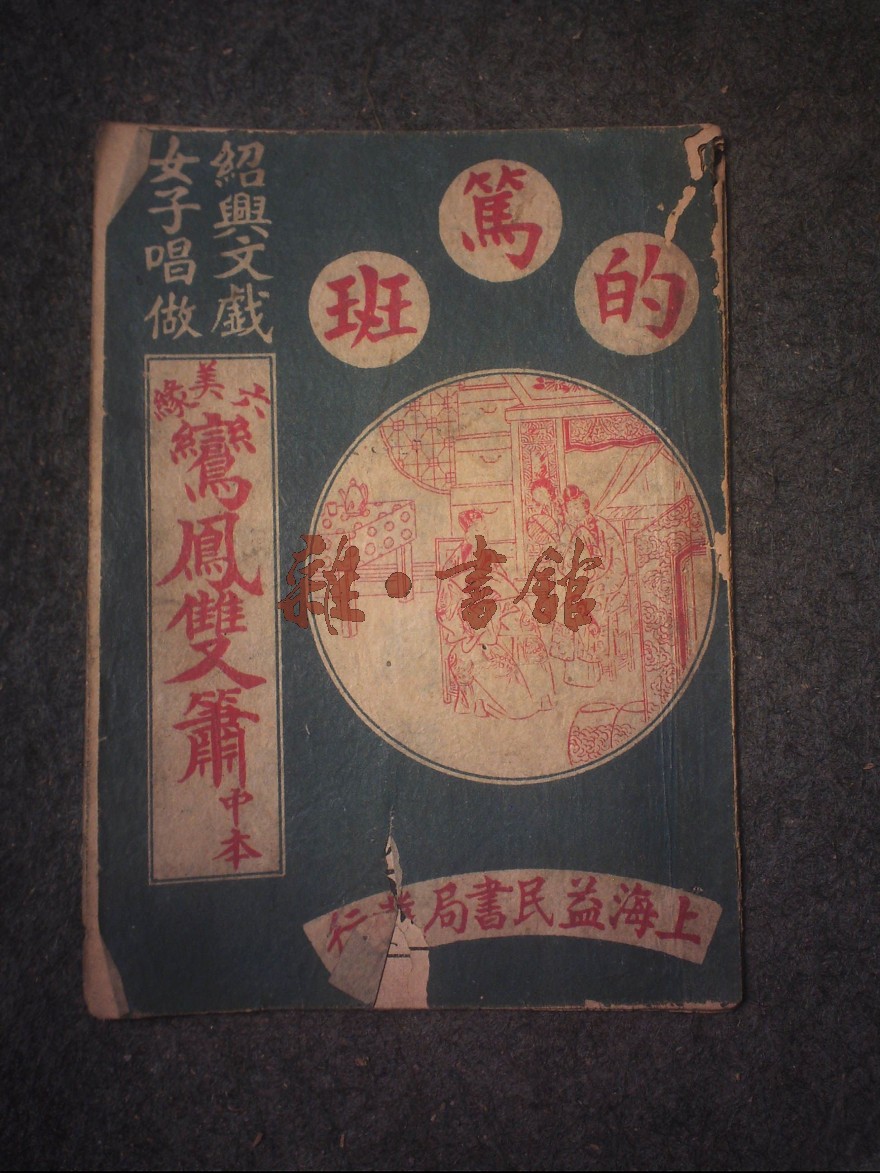 的篤班
紹興文戲
女子唱做
六美緣
鸞鳳雙簫
中本
上海益民書局發行
雜·書舘